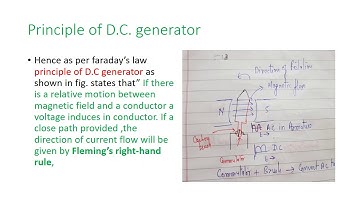 Principle of D.C. generator
• Hence as per faraday's law
principle of D.C generator as
shown in fig. states that" If there
is a relative motion between
magnetic field and a conductor a
voltage induces in conductor. If a
close path provided ,the
direction of current flow will be
given by Fleming's right-hand
rule,
Direction of Rotation
Magnetic flux
N
S
AC in Armature
Carbon
brush
DC
Commutator
Commutator + Brush → Convert AC